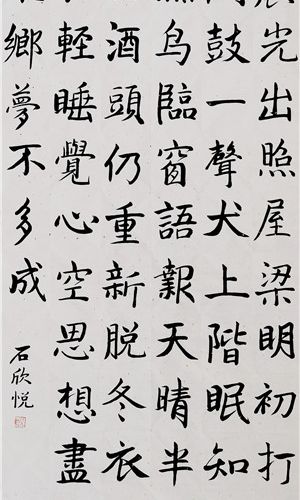 光出照屋梁明初打
鼓一聲犬上階眠知
鳥臨窗語報天晴半
酒頭仍重新脫冬衣
輕睡覺心空思想盡
鄉夢不多成
石欣悅